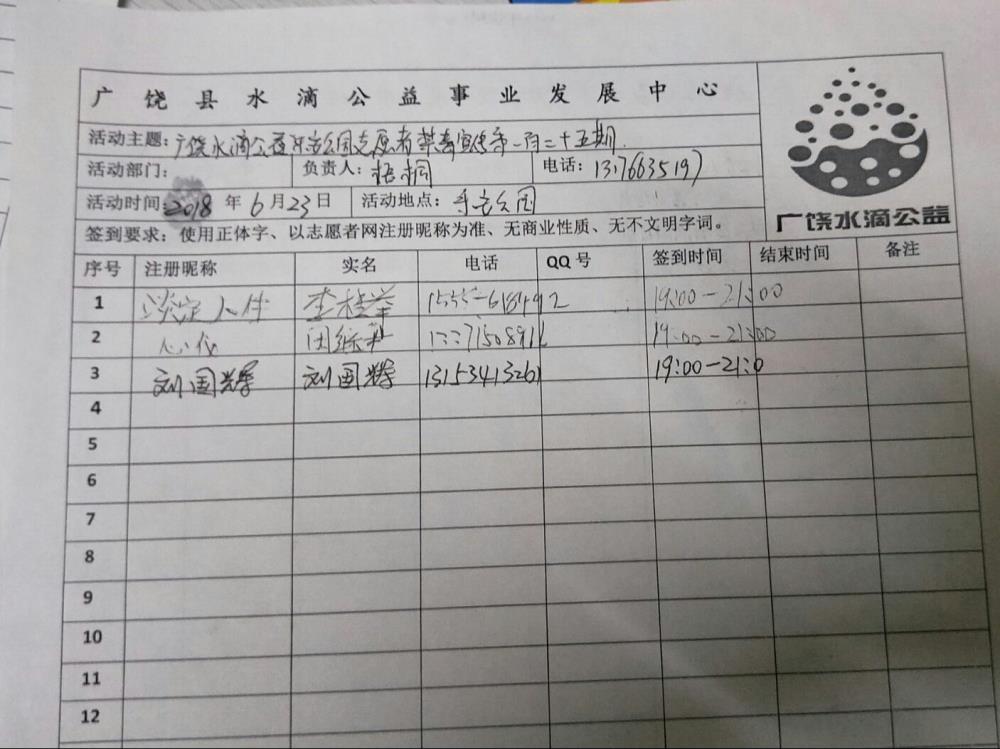 广饶县水滴公益事业发展中心
活动主题：广饶水滴公益孙武公园志愿者禁毒宣传第一百二十五期
活动部门： 负责人：梧桐 电话：13176635197
活动时间：2018年6月23日 活动地点：公园
签到要求：使用正体字、以志愿者网注册昵称为准、无商业性质、无不文明字词。
广饶水滴公益
序号 注册昵称 实名 电话 QQ号 签到时间 结束时间 备注
1 淡定人生 李桂 19:00-21:00
2 心仪 19:00-21:00
3 刘国辉 刘国辉 13153413261 19:00-21:0
4
5
6
7
8
9
10
11
12